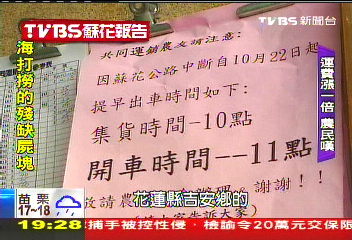 TVBS 蘇花報告
TVBS 新聞台
海打撈的殘缺屍塊
運費漲一倍 農民嘆
共同運銷農友請注意:
因蘇花公路中斷自10月22日起
提早出車時間如下:
集貨時間-10點
開車時間--11點
敬請農
謝謝!!
花蓮縣吉安鄉的
苗栗
17~18
19:28
捕手被控性侵,檢諭令20萬元交保限